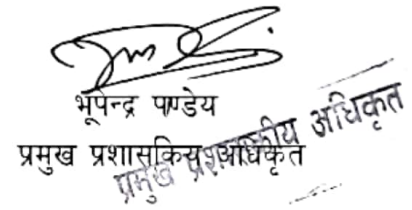 भूपेन्द्र पाण्डेय
प्रमुख प्रशासकिय अधिकृत
प्रमुख प्रशासकीय अधिकृत